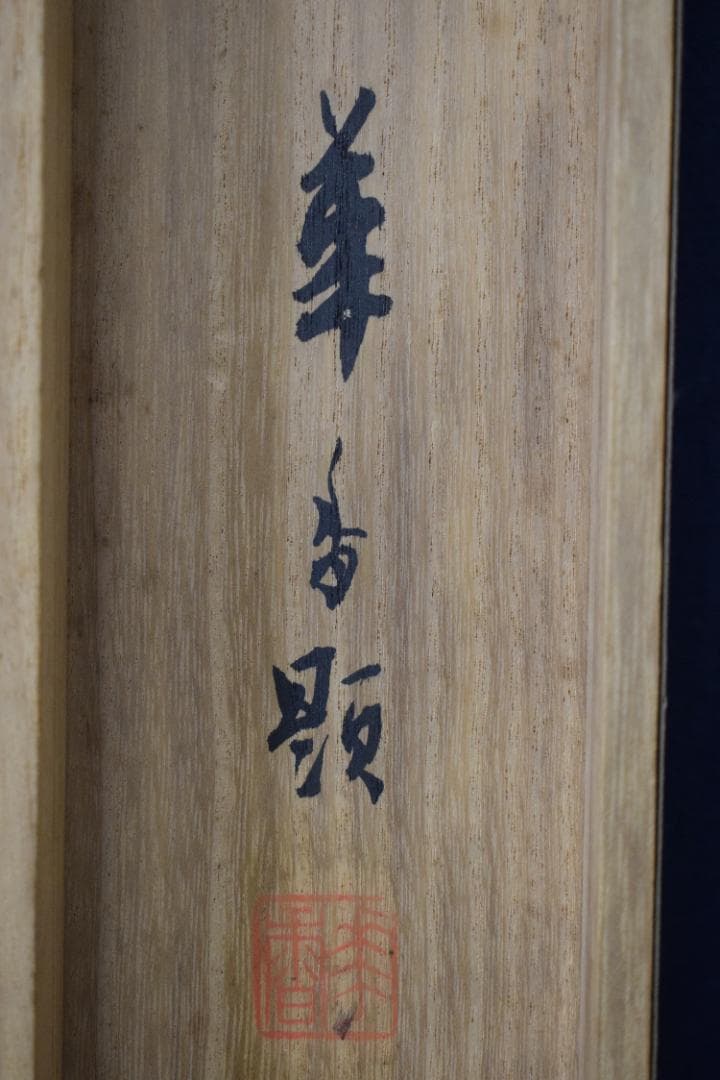 華香題